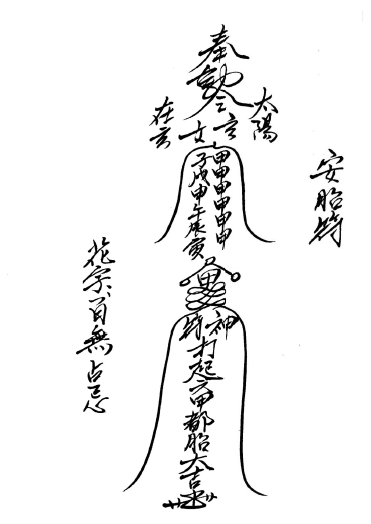 安胎符
奉勅令
太陽
甲甲甲甲甲甲
子戌申午辰寅
神符打起六甲都胎大吉
百無占忌